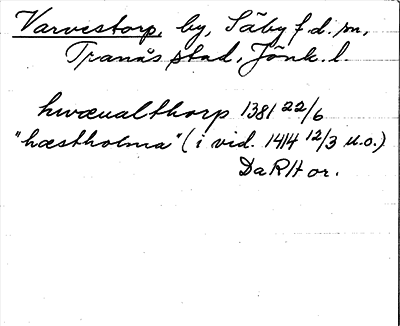 Varvestorp, by, Säby f.d. sn,
Tranås stad, Jönk. l.
hwæualthorp 1381 22/6
"hæstholma" (i vid. 1414 12/3 u.o.)
DaRH or.